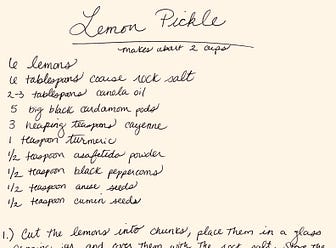 Lemon Pickle
makes about 2 cups
6 lemons
6 tablespoons coarse rock salt
2-3 tablespoons canola oil
5 big black cardamom pods
3 heaping teaspoons cayenne
1 teaspoon turmeric
1/2 teaspoon asafetida powder
1/2 teaspoon black peppercorns
1/2 teaspoon anise seeds
1/2 teaspoon cumin seeds
1.) Cut the lemons into chunks, place them in a glass
jar and cover them with the rock salt.